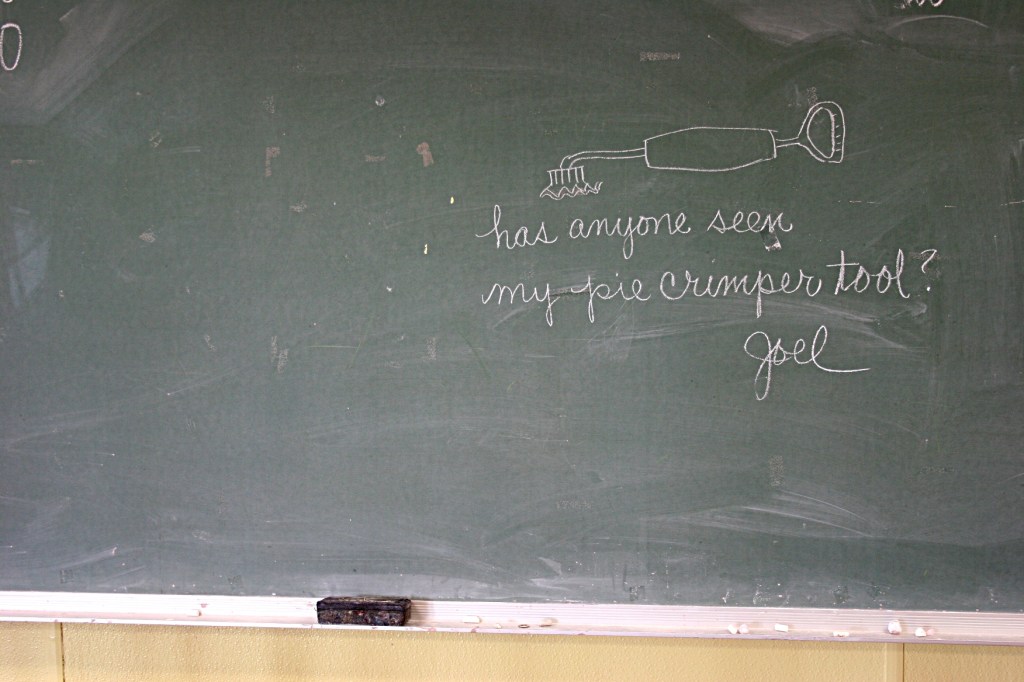 has anyone seen
my pie crimper tool?
Joel